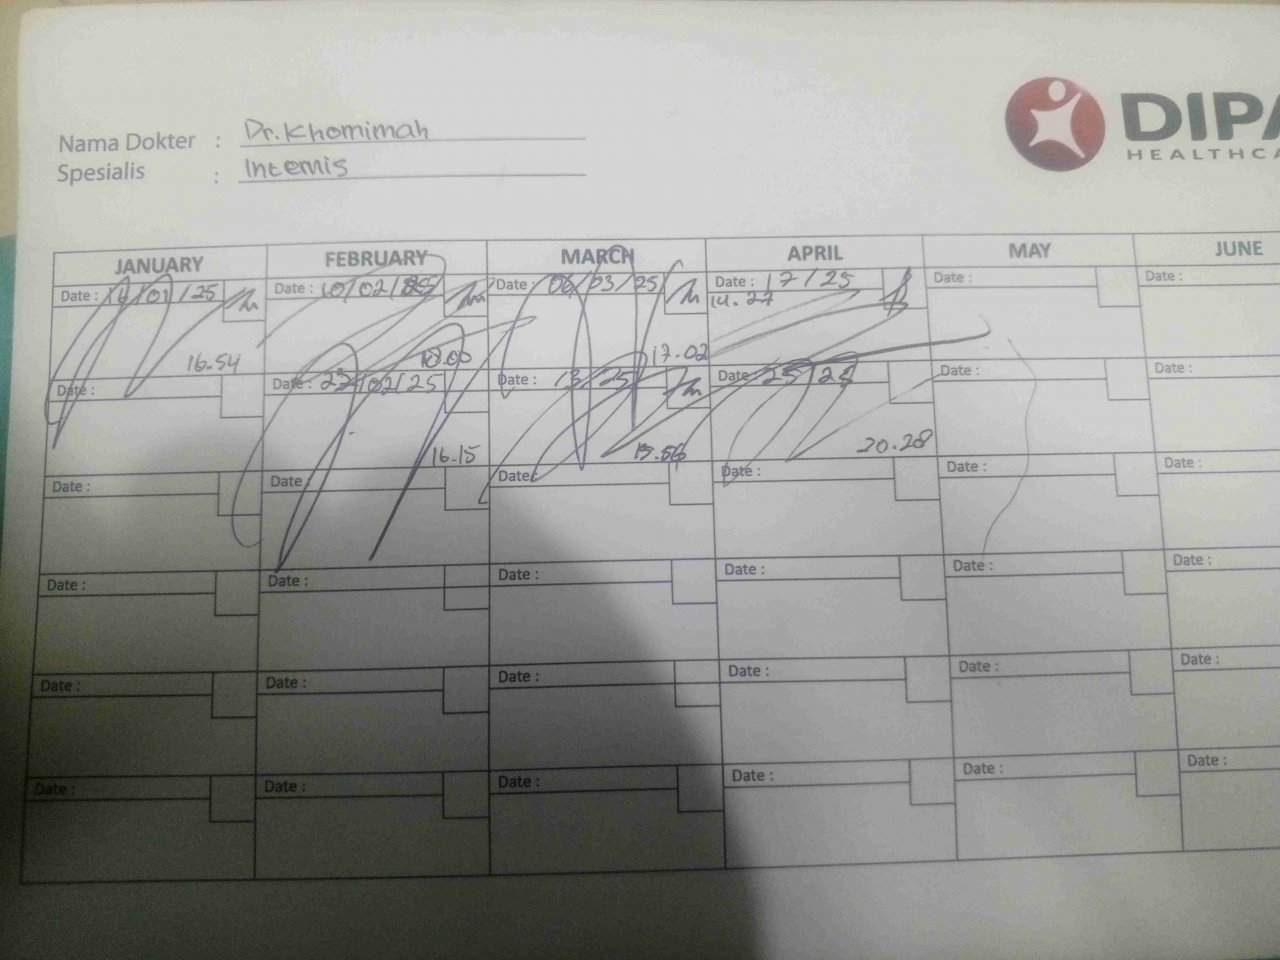 DIPA
HEALTHCA
Nama Dokter : Dr. Khomimah
Spesialis : Internis
JANUARY FEBRUARY MARCH APRIL MAY JUNE
Date : /01/25 Date : 10/02/25 Date : 06/03/25 Date : 17/25 Date : Date :
14.27
16.54 17.02
Date : Date : 22/02/25 Date : 13/25 Date : 25/25 Date : Date :
16.15 20.28
Date : Date : Date : Date : Date : Date :
Date : Date : Date : Date : Date : Date :
Date : Date : Date : Date : Date : Date :
Date : Date : Date : Date : Date : Date :